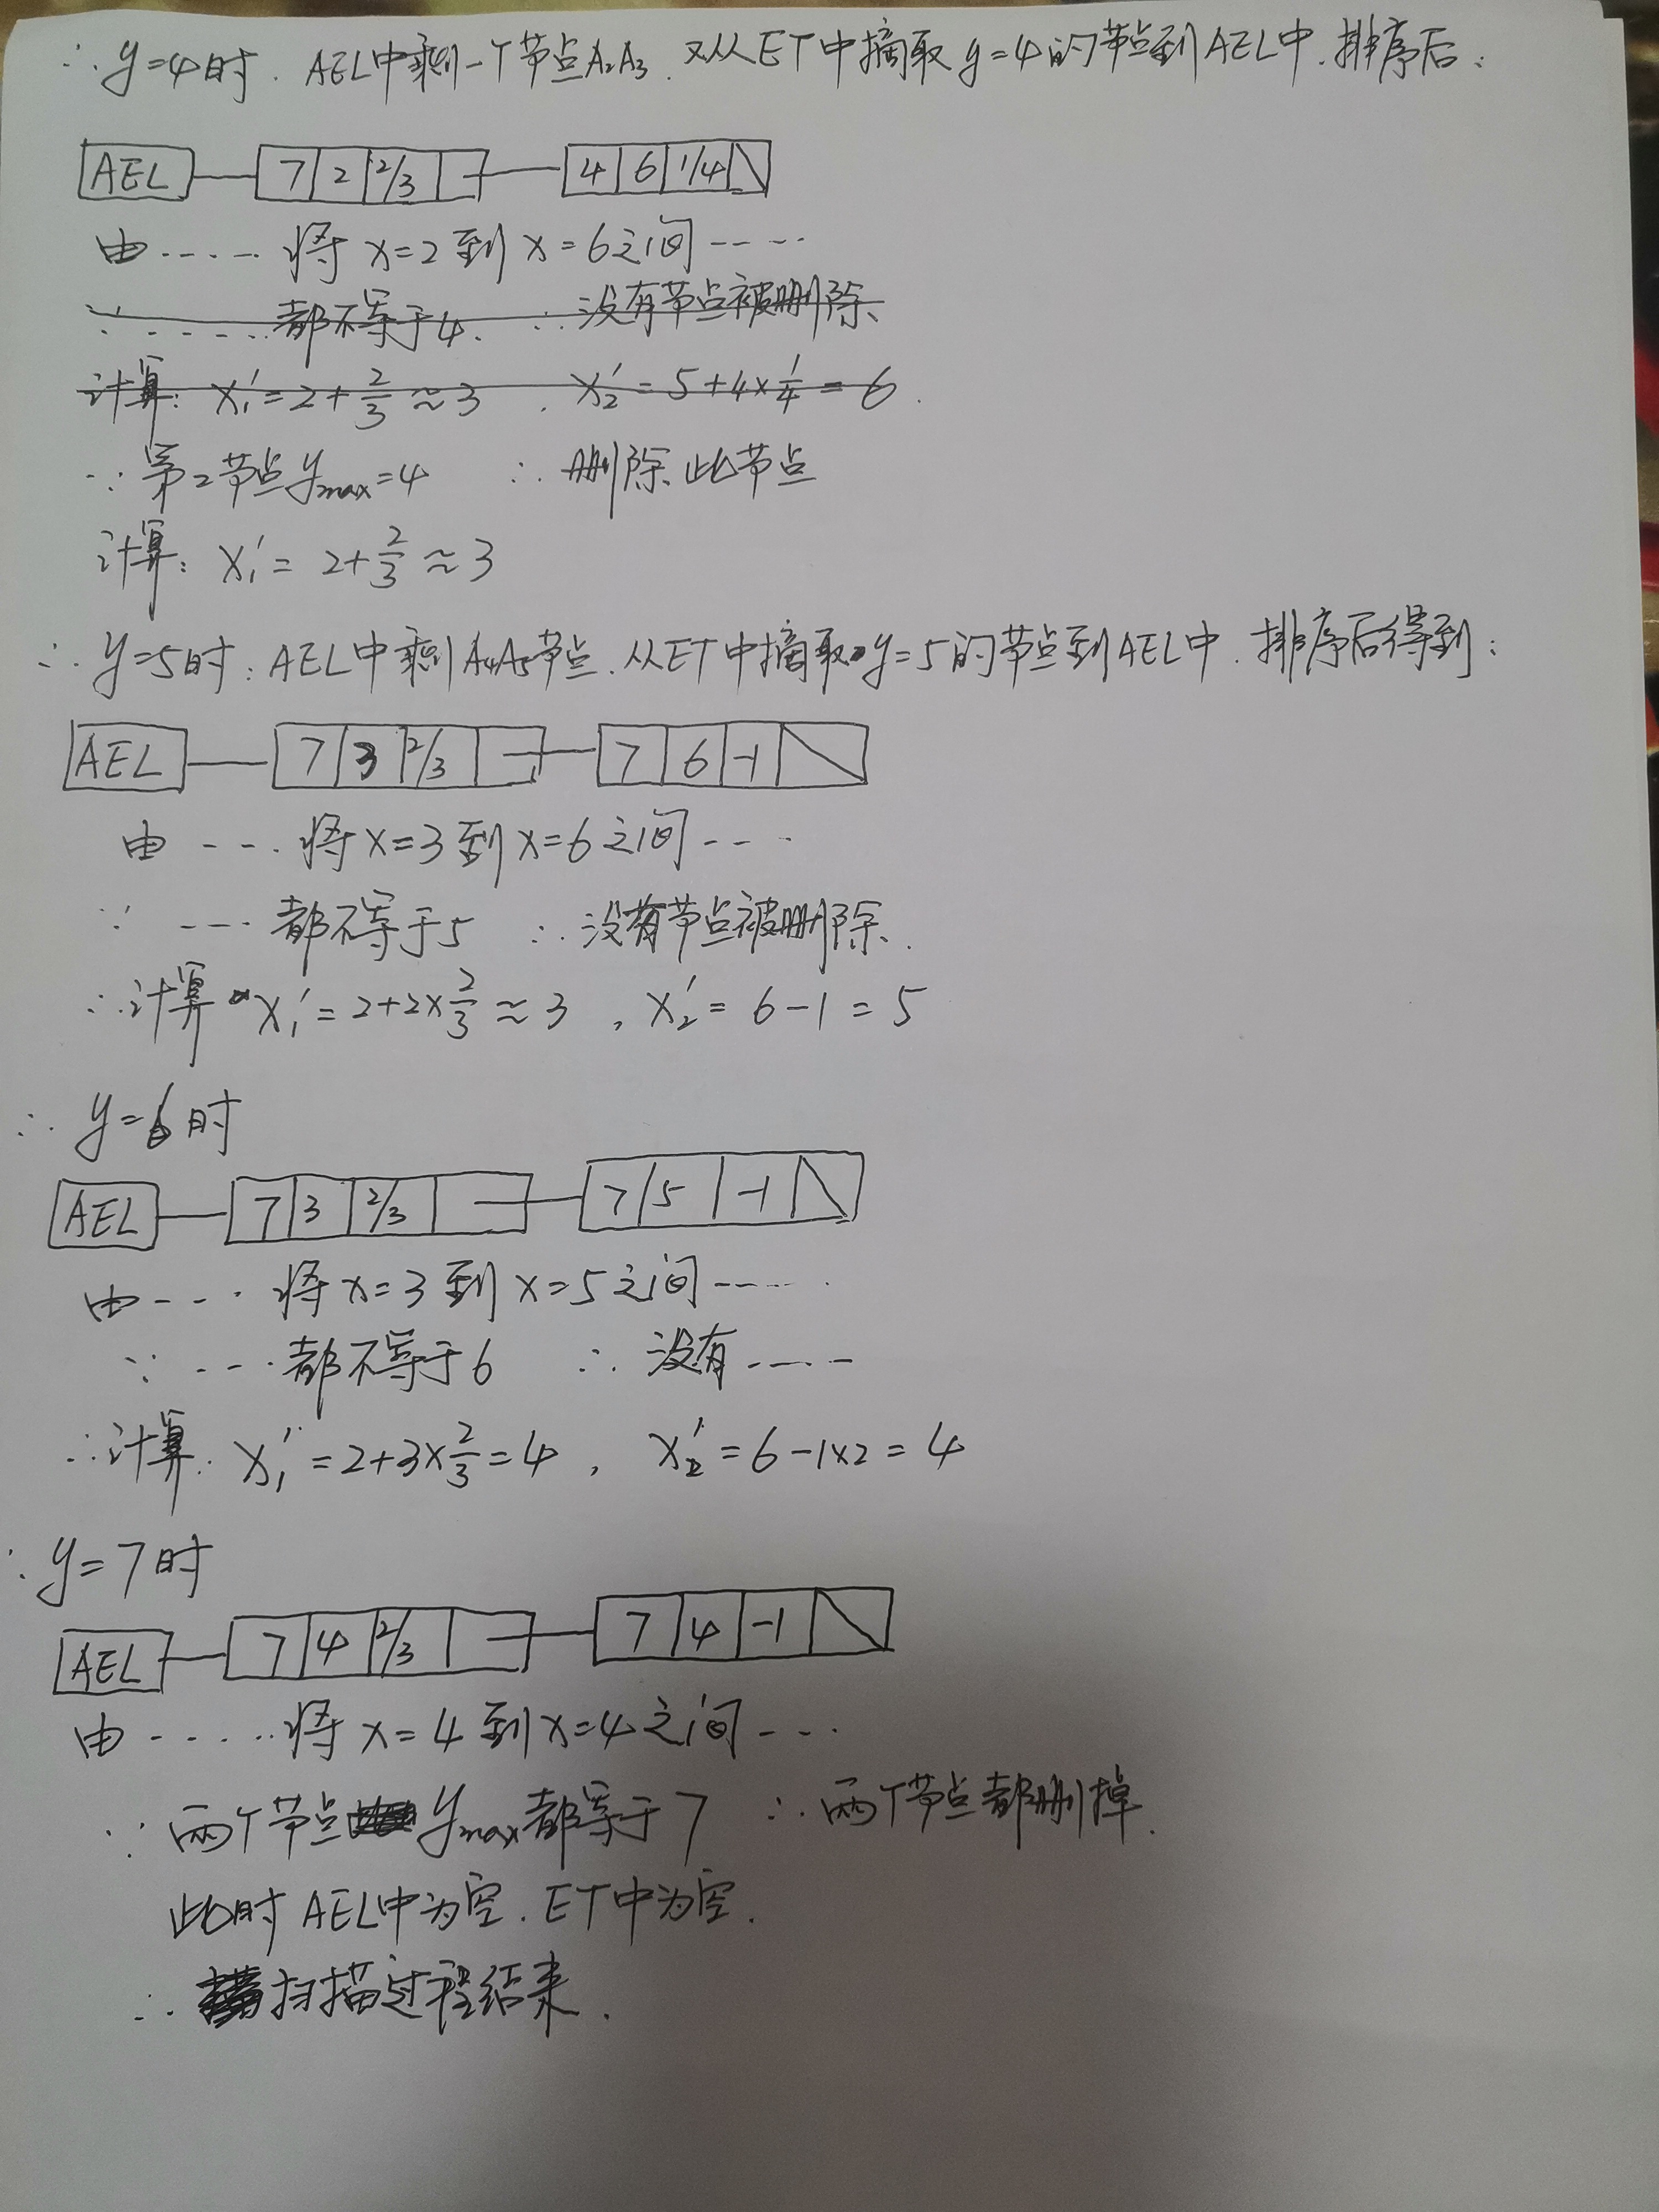 ∴ y=4时. AEL中剩一个节点A₂A₃. 又从ET中摘取y=4的节点到AEL中.排序后:
AEL 7 2 2/3 4 6 1/4
由..... 将x=2到x=6之间....
∵ ..... 都不等于4. ∴没有节点被删除
计算: x₁′=2+2/3≈3 , x₂′=5+4×1/4=6.
∵第2节点ymax=4 ∴删除此节点
计算: x₁′= 2+2/3≈3
∴ y=5时: AEL中剩A₄A₅节点.从ET中摘取y=5的节点到AEL中.排序后得到:
AEL 7 3 2/3 7 6 -1
由 .... 将x=3到x=6之间....
∵ .... 都不等于5 ∴没有节点被删除.
∴计算 x₁′=2+2×2/3≈3 , x₂′= 6-1=5
∴ y=6时
AEL 7 3 2/3 7 5 -1
由.... 将x=3到x=5之间.....
∵ ....都不等于6 ∴ 没有.....
∴计算: x₁′=2+3×2/3=4 , x₂′=6-1×2=4
∴y=7时
AEL 7 4 2/3 7 4 -1
由 ......将x=4到x=4之间...
∵ 两个节点ymax都等于7 ∴两个节点都删掉.
此时AEL中为空.ET中为空.
∴ 扫描过程结束.